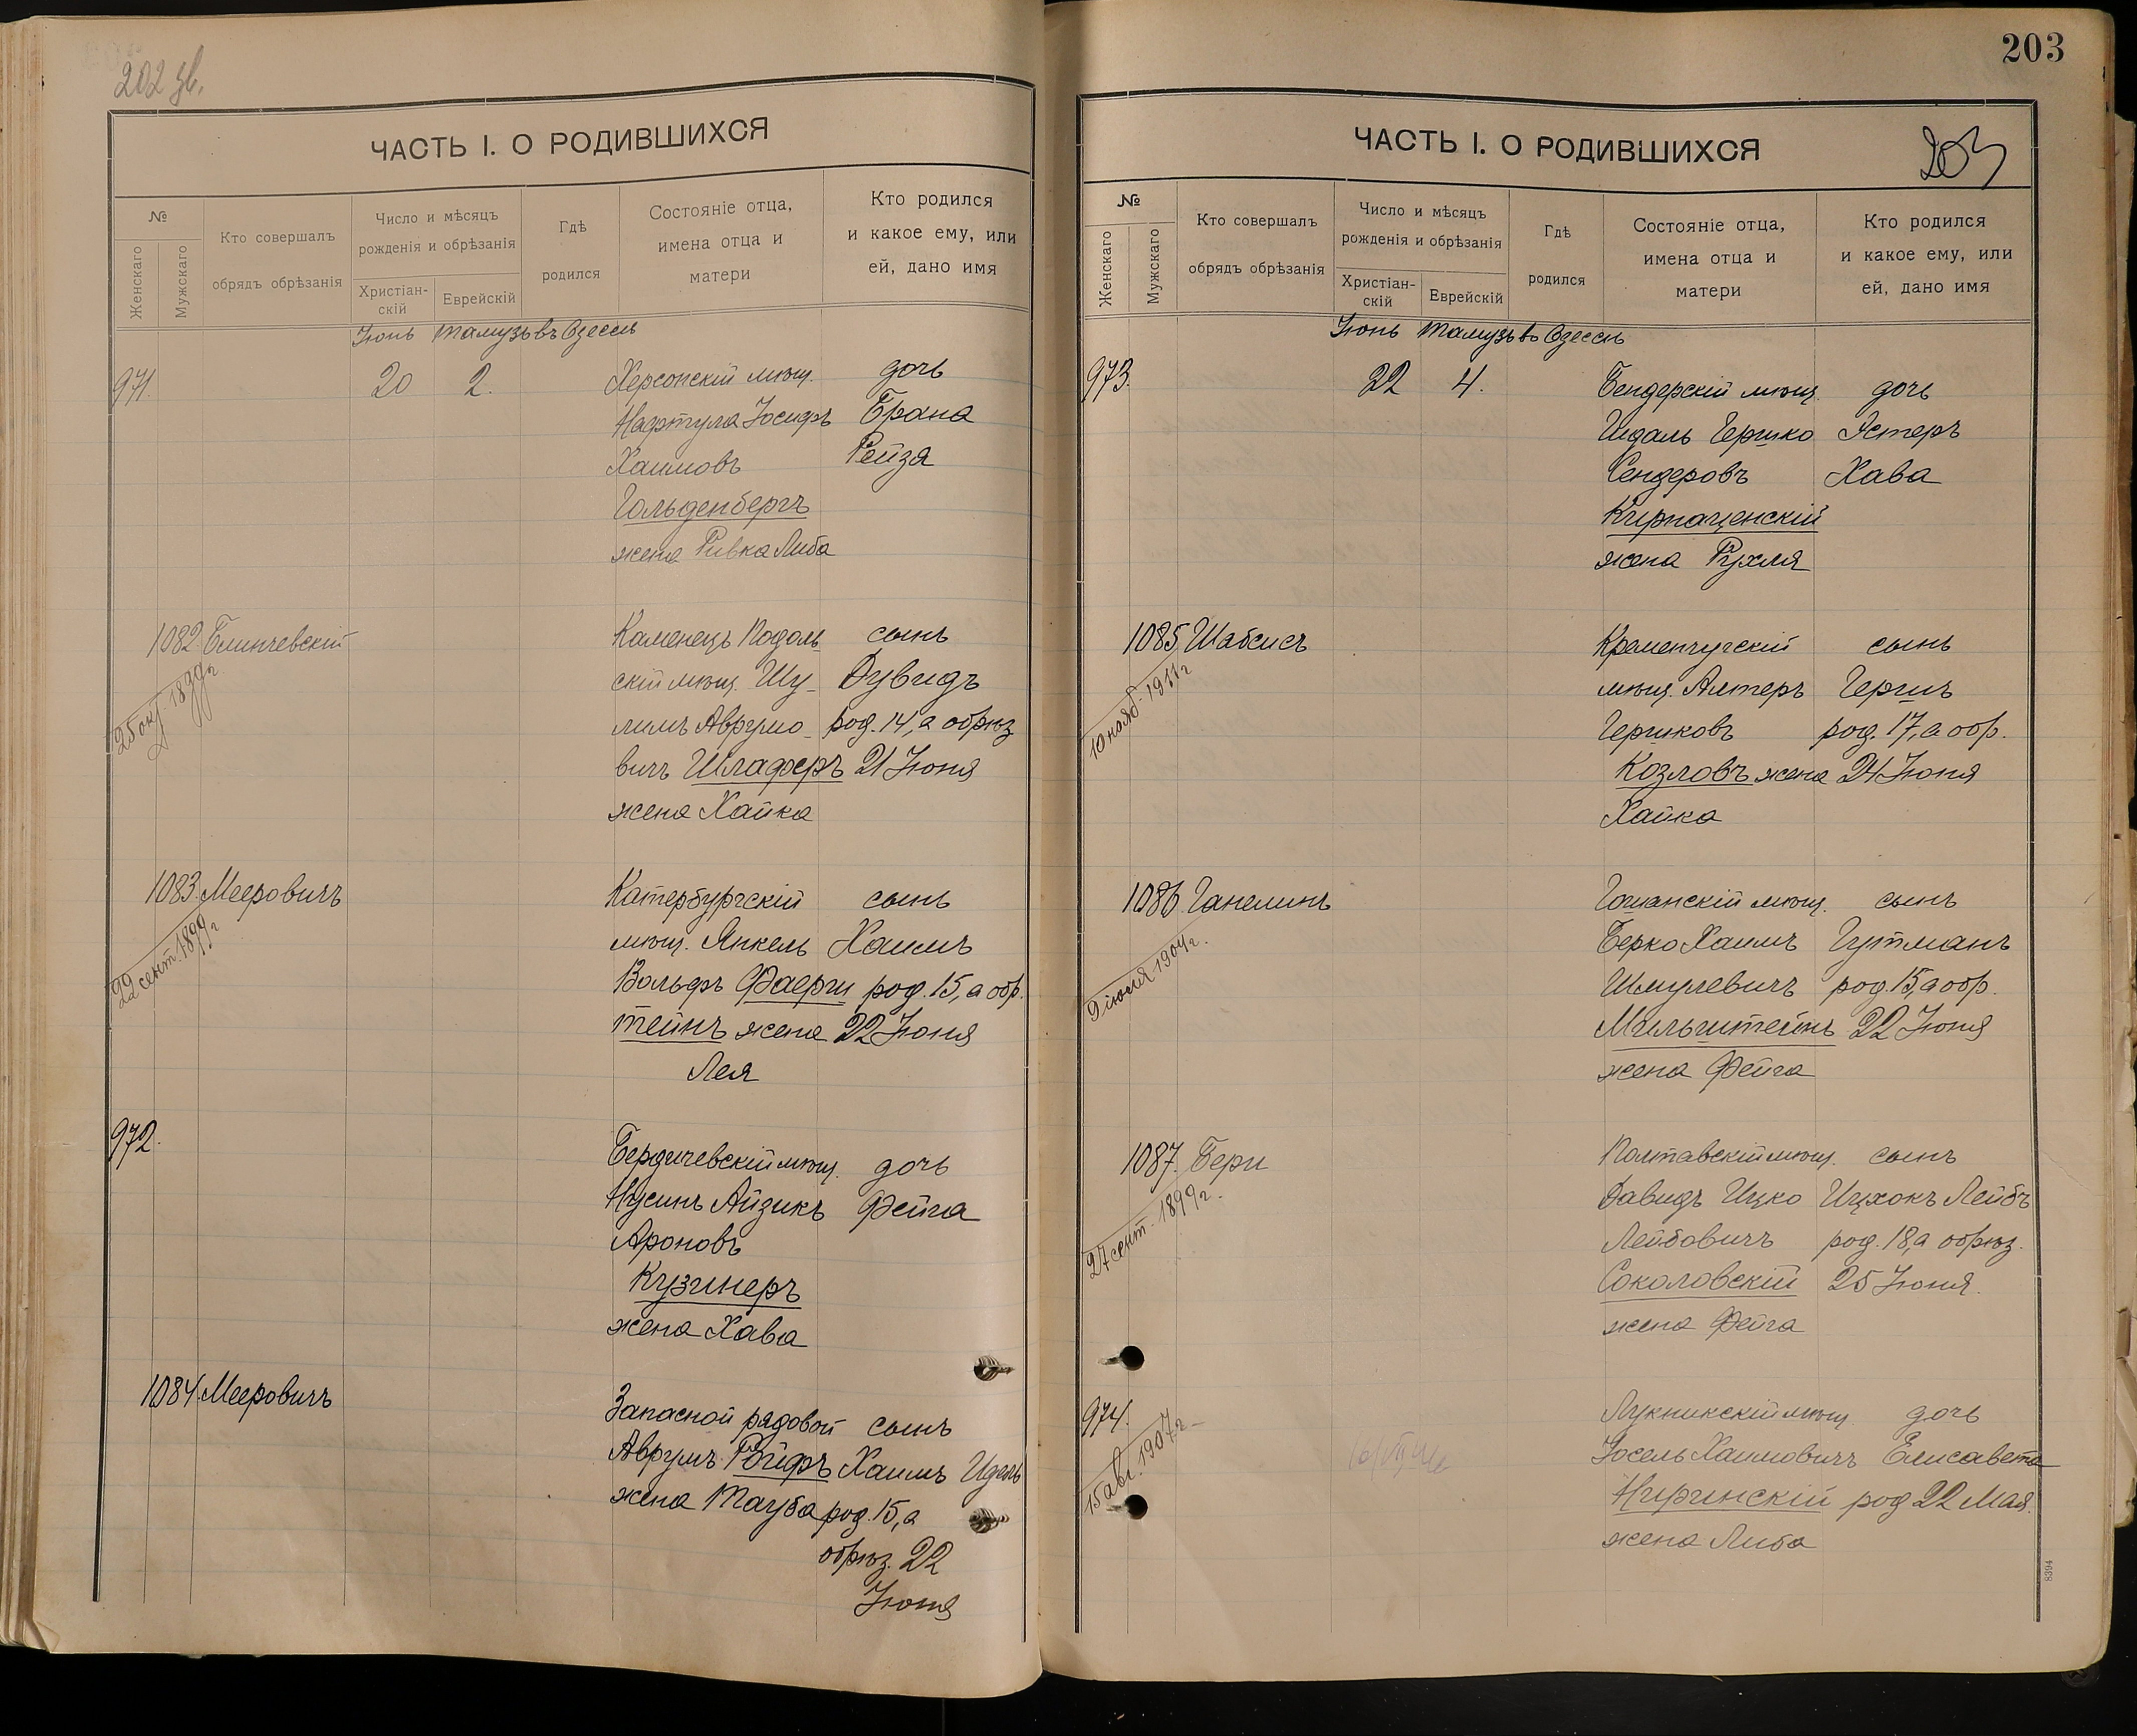 202 зв.
ЧАСТЬ I. О РОДИВШИХСЯ
№
Женскаго
Мужскаго
Кто совершалъ
обрядъ обрѣзанія
Число и мѣсяцъ
рожденія и обрѣзанія
Христіан-
скій
Еврейскій
Гдѣ
родился
Состояніе отца,
имена отца и
матери
Кто родился
и какое ему, или
ей, дано имя
Іюнь Тамузъ въ Одессѣ
971. 20 2. Херсонскій мѣщ. дочь
Нафтула Іосифъ Брана
Хаимовъ Рейзя
Гольденбергъ
жена Ривка Либа
1082 Блинчевскій Каменецъ Подоль- сынъ
25 окт. 1899 г.
скій мѣщ. Шу- Дувидъ
лимъ Аврумо- род. 14, а обрѣз
вичъ Шлаферъ 21 Іюня
жена Хайка
1083. Мееровичъ Катербургскій сынъ
22 сент. 1899 г
мѣщ. Янкель Хаимъ
Вольфъ Фаерш род. 15, а обр.
тейнъ жена 22 Іюня
Лея
972. Бердичевскій мѣщ. дочь
Нусинъ Айзикъ Фейга
Ароновъ
Кузинеръ
жена Хава
1084. Мееровичъ Запасной рядовой сынъ
Аврумъ Ройфъ Хаимъ Идель
жена Тауба род. 15, а
обрѣз. 22
Іюня
203
ЧАСТЬ I. О РОДИВШИХСЯ
203
№
Женскаго
Мужскаго
Кто совершалъ
обрядъ обрѣзанія
Число и мѣсяцъ
рожденія и обрѣзанія
Христіан-
скій
Еврейскій
Гдѣ
родился
Состояніе отца,
имена отца и
матери
Кто родился
и какое ему, или
ей, дано имя
Іюнь Тамузъ въ Одессѣ
973. 22 4. Бендерскій мѣщ. дочь
Шдаль Гершко Эстеръ
Сендеровъ Хава
Кирпаценскій
жена Рухля
1085 Шабсисъ Кременчугскій сынъ
10 нояб. 1911 г
мѣщ. Алтеръ Гершъ
Гершковъ род. 17, а обр.
Козловъ жена 24 Іюня
Хайка
1086. Ганелинъ Гошанскій мѣщ. сынъ
9 іюля 1904 г.
Берко Хаимъ Гутманъ
Шмулевичъ род. 15, а обр.
Мильштейнъ 22 Іюня
жена Фейга
1087. Бери Полтавскій мѣщ. сынъ
27 сент. 1899 г.
Давидъ Ицко Ицхокъ Лейбъ
Лейбовичъ род. 18, а обрѣз.
Соколовскій 25 Іюня.
жена Фейга
974. Лукникскій мѣщ дочь
15 авг. 1907 г.
Іосель Хаимовичъ Елисавета
Ниринскій род 22 Мая.
жена Либа
8394